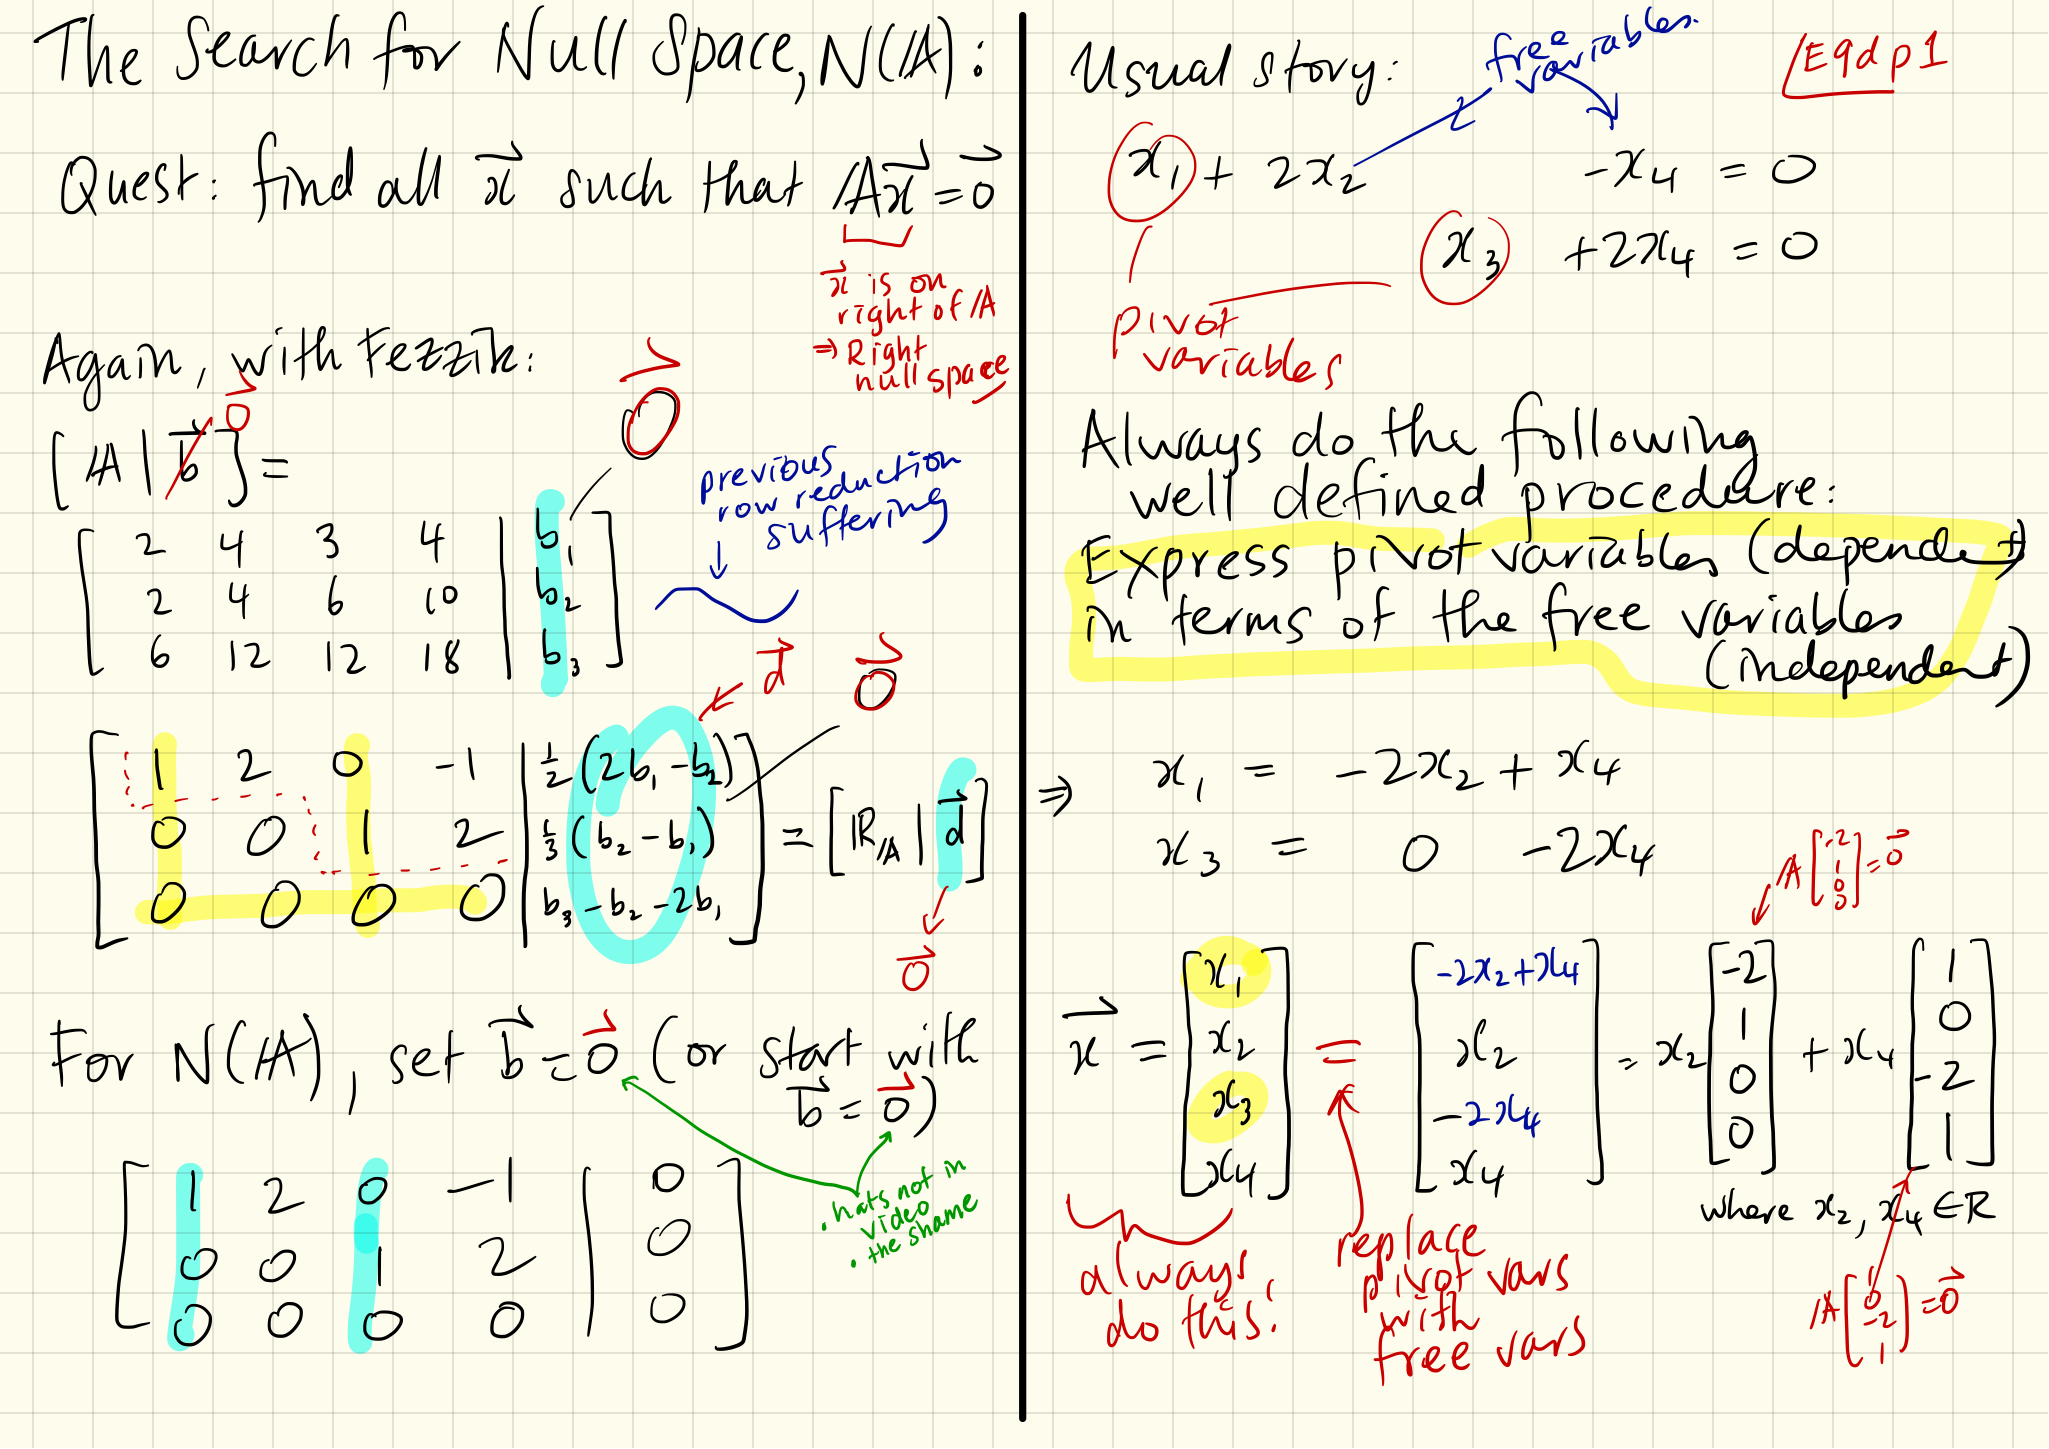 The Search for Null Space, N(A):
Quest: find all x⃗ such that Ax⃗ = 0⃗
x⃗ is on
right of A
⇒ Right
null space
Again, with Fezzik:
[A | b⃗] = 0⃗
0⃗
previous
row reduction
suffering
2 4 3 4 | b₁
2 4 6 10 | b₂
6 12 12 18 | b₃
d⃗
0⃗
1 2 0 -1 | ½(2b₁ - b₂)
0 0 1 2 | ⅓(b₂ - b₁)
0 0 0 0 | b₃ - b₂ - 2b₁
= [R_A | d⃗]
0⃗
For N(A), set b⃗ = 0⃗ (or start with
b⃗ = 0⃗)
• hats not in
video
• the shame
1 2 0 -1 | 0
0 0 1 2 | 0
0 0 0 0 | 0
Usual story:
free
variables.
E9d p1
x₁ + 2x₂ -x₄ = 0
x₃ +2x₄ = 0
pivot
variables
Always do the following
well defined procedure:
Express pivot variables (dependent)
in terms of the free variables
(independent)
⇒ x₁ = -2x₂ + x₄
x₃ = 0 -2x₄
A [-2 1 0 0] = 0⃗
x⃗ = [x₁ x₂ x₃ x₄] = [-2x₂+x₄ x₂ -2x₄ x₄] = x₂ [-2 1 0 0] + x₄ [1 0 -2 1]
where x₂, x₄ ∈ R
always
do this!
replace
pivot vars
with
free vars
A [1 0 -2 1] = 0⃗